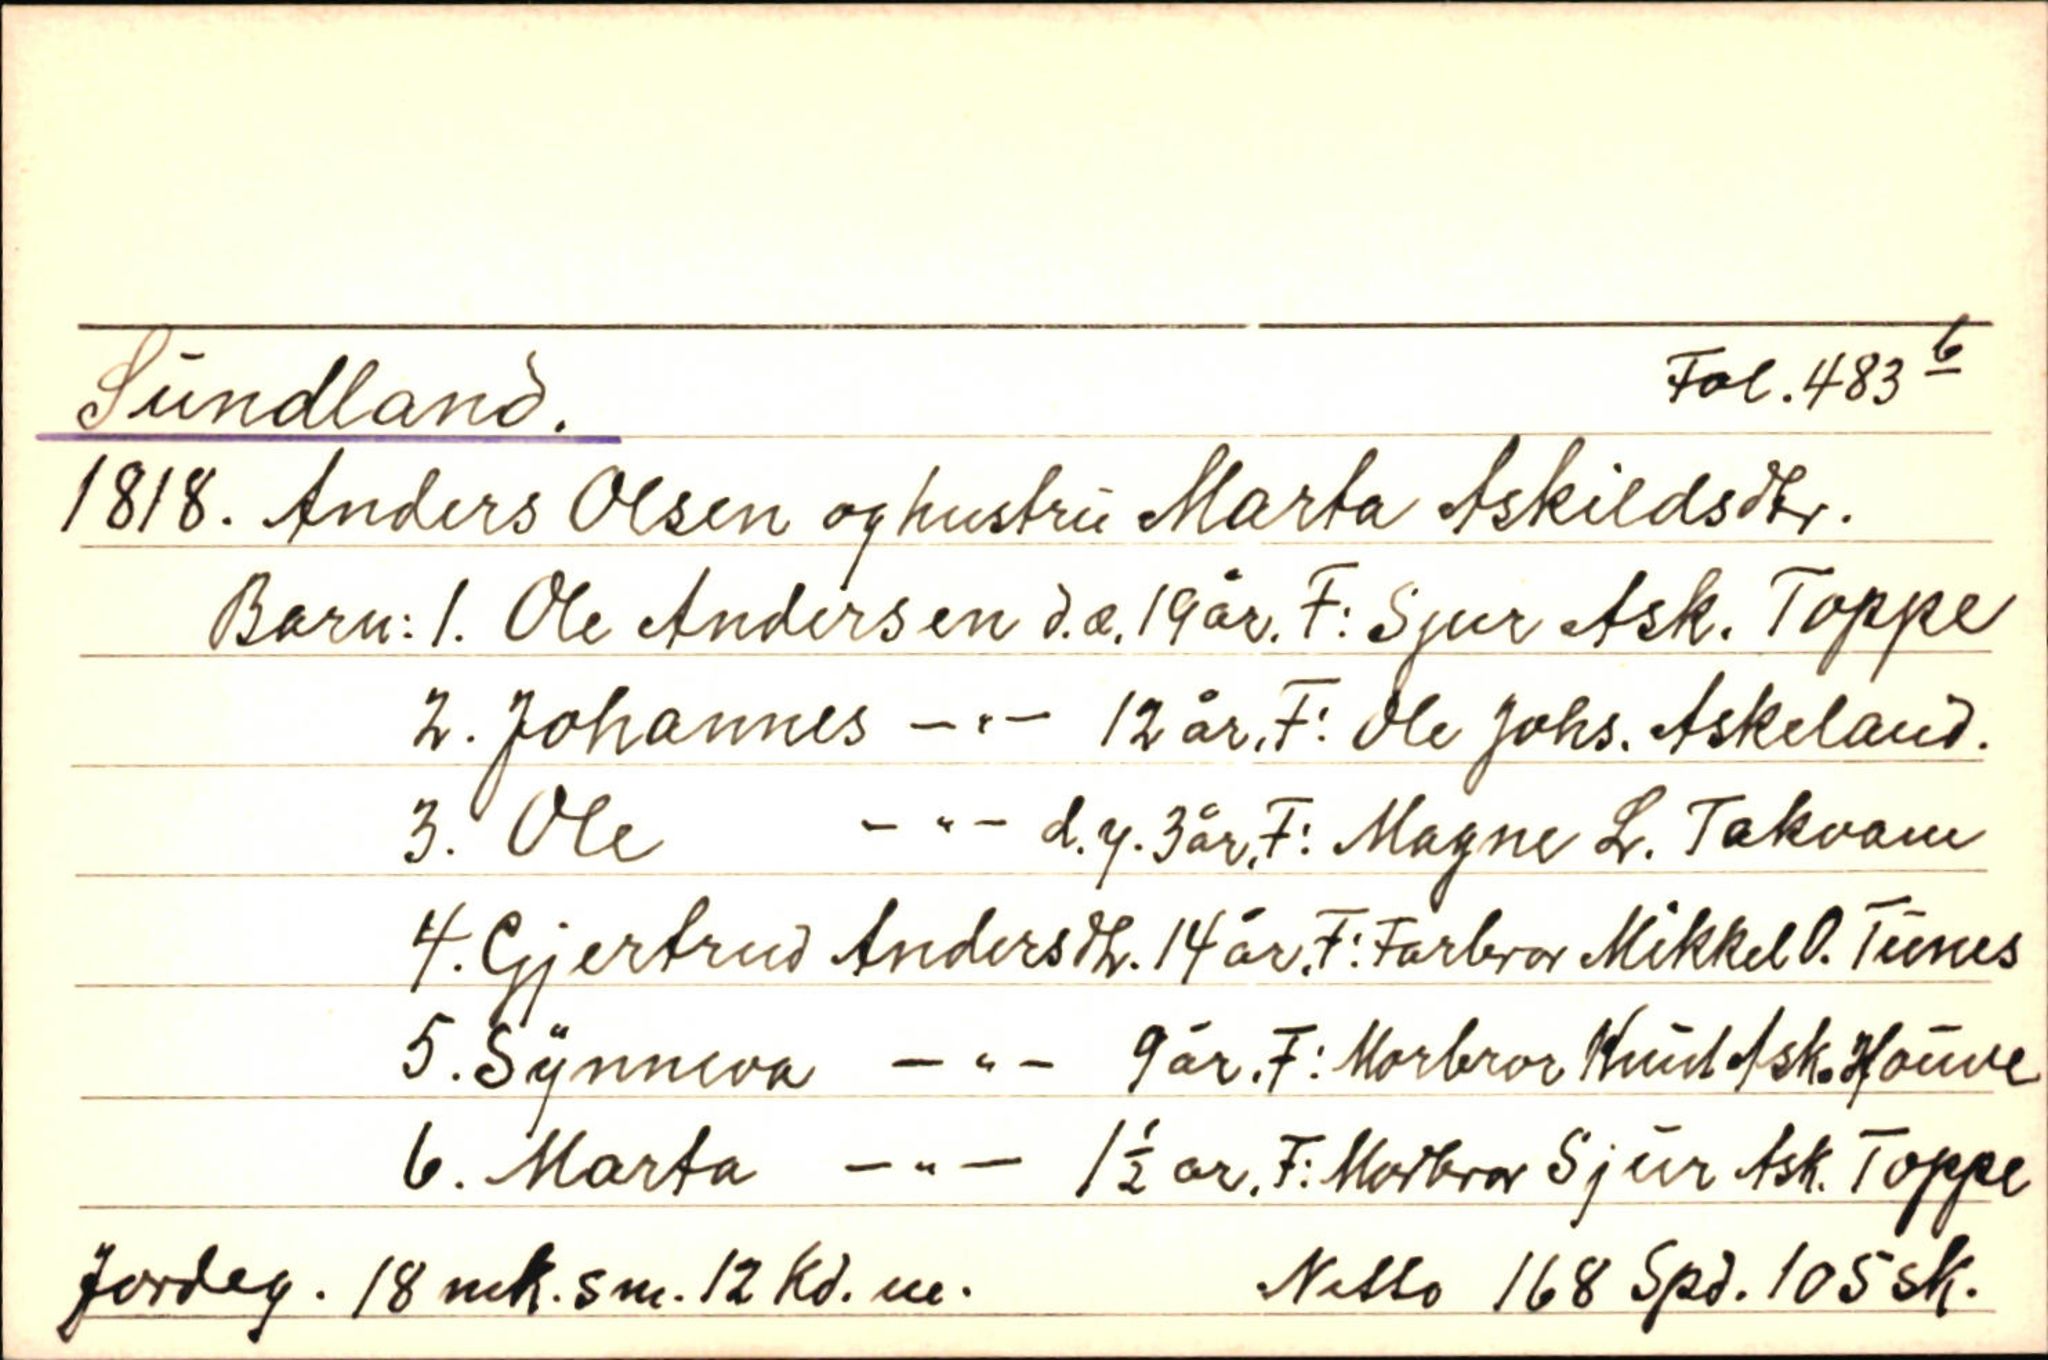 Sūndland. Fol. 483 b
1818. Anders Olsen og hustrū Marta Askildsdtr.
Barn: 1. Ole Andersen d.e. 19 år. F: Sjur Ask. Toppe
2. Johannes —"— 12 år. F: Ole Johs. Askeland.
3. Ole —"— d.y. 3 år. F: Magne L. Takvam
4. Gjertrud Andersdtr. 14 år. F: Farbror Mikkel O. Tūnes
5. Sÿnneva —"— 9 år. F: Morbror Knūd Ask. Hoūve
6. Marta —"— 1½ år. F: Morbror Sjūr Ask. Toppe
Jordeg. 18 mk. sm. 12 Kd. m. Netto 168 Spd. 105 sk.